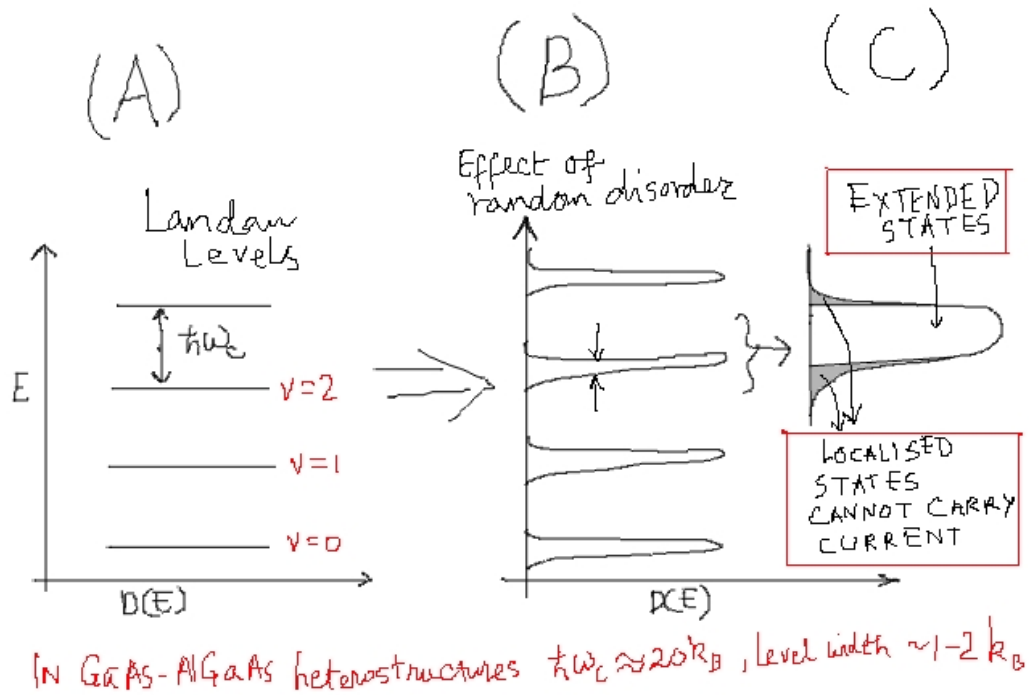 (A)
(B)
(C)
Landau
Levels
Effect of
random disorder
EXTENDED
STATES
E
ħωc
ν=2
ν=1
ν=0
D(E)
D(E)
LOCALISED
STATES
CANNOT CARRY
CURRENT
IN GaAs-AlGaAs heterostructures ħωc≈20kB, level width ~1-2 kB